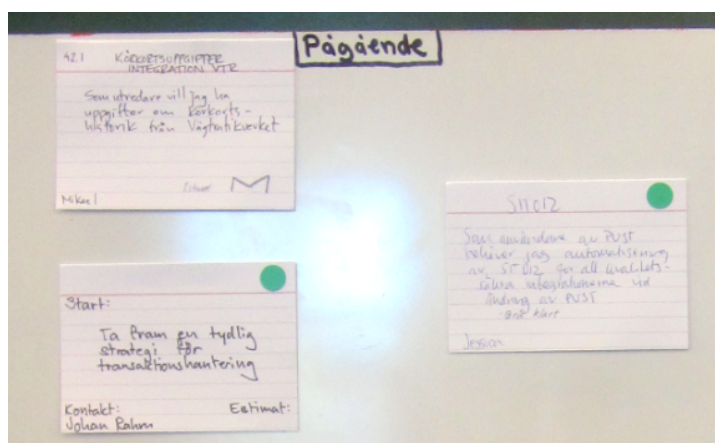 Pågående
42.1 KÖRKORTSUPPGIFTER
INTEGRATION VTR
Som utredare vill jag ha
uppgifter om körkorts-
historik från Vägtrafikverket
M
Mikael
Start:
Ta fram en tydlig
strategi för
transaktionshantering
Kontakt: Estimat:
Johan Rahm
Som användare av PUST
behöver jag automatisering
av för all kvalitets-
säkra integrationerna vid
ändring av PUST
klart